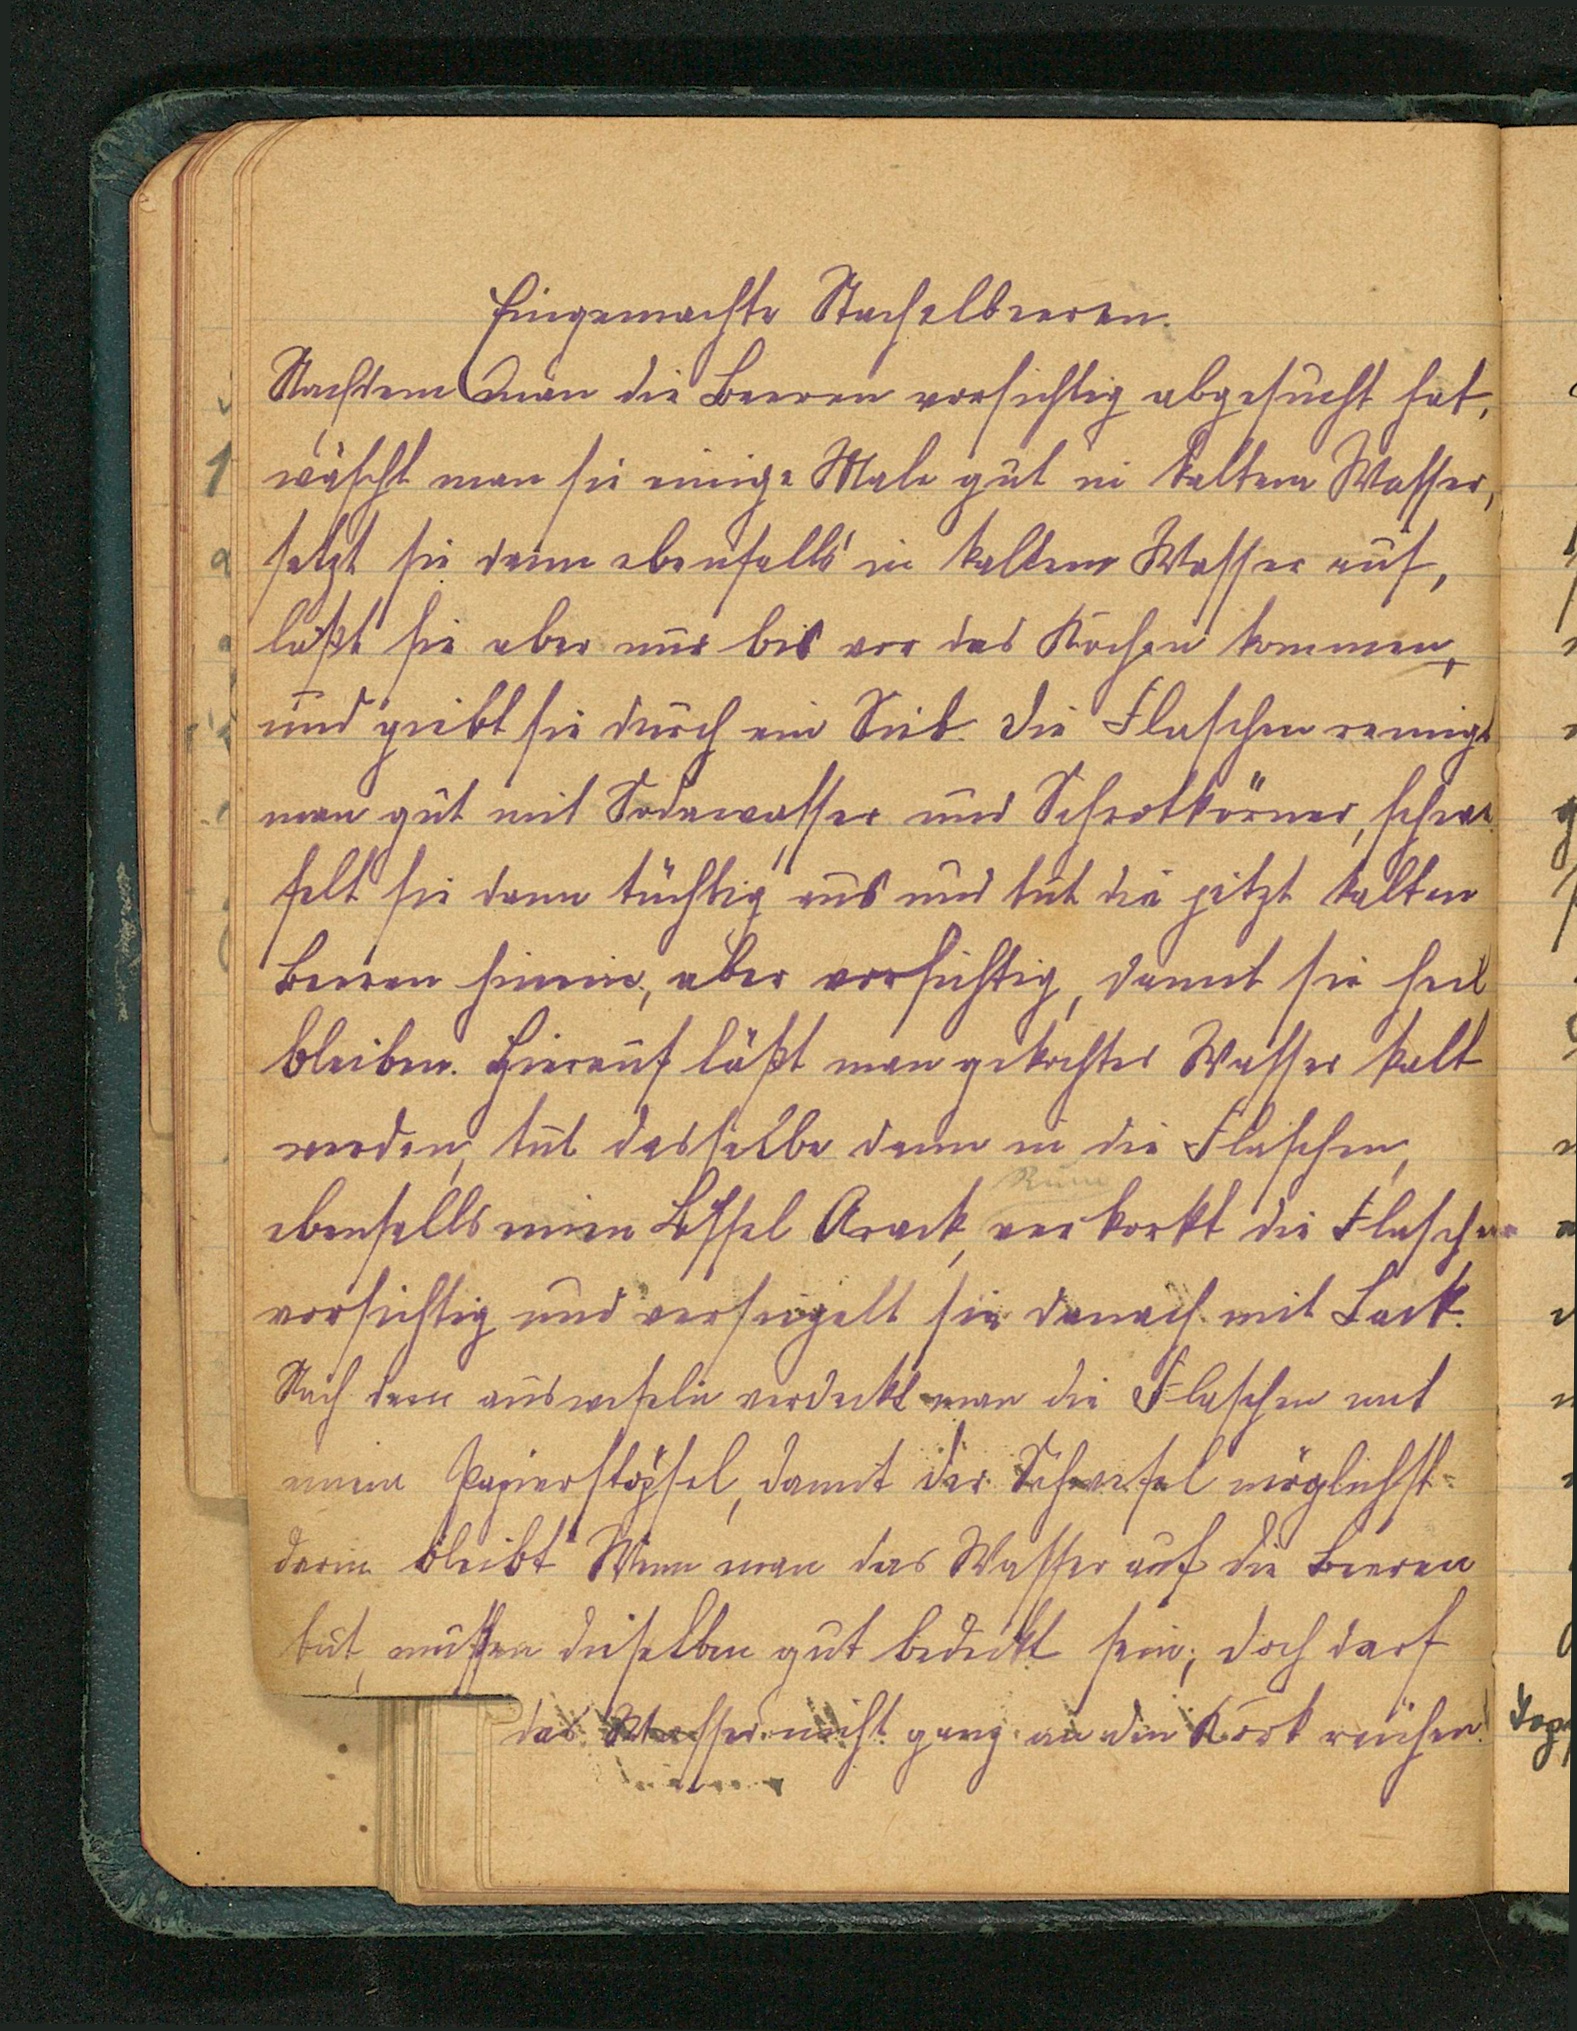 Eingemachte Stachelbeeren.
Nachdem man die Beeren vorsichtig abgesucht hat,
wäscht man sie einige Male gut in kaltem Wasser,
setzt sie dann ebenfalls in kaltem Wasser auf,
läßt sie aber nur bis vor das Kochen kommen,
und giebt sie durch ein Sieb. Die Flaschen reinigt
man gut mit Sodawasser und Schrotkörner, schwe-
felt sie dann tüchtig aus und tut die jetzt kalten
Beeren hinein, aber vorsichtig, damit sie heil
bleiben. Hierauf läßt man gekochtes Wasser kalt
werden, tut dasselbe dann in die Flaschen,
Rum
ebenfalls einen Löffel Arack, verkorkt die Flaschen
vorsichtig und versiegelt sie danach mit Lack.
Nach dem verdeckt man die Flaschen mit
einem Papierstöpsel, damit der Schwefel möglichst
darin bleibt. Wenn man das Wasser auf die Beeren
tut, müssen dieselben gut bedeckt sein; doch darf
das Wasser nicht ganz an den Kork reichen.